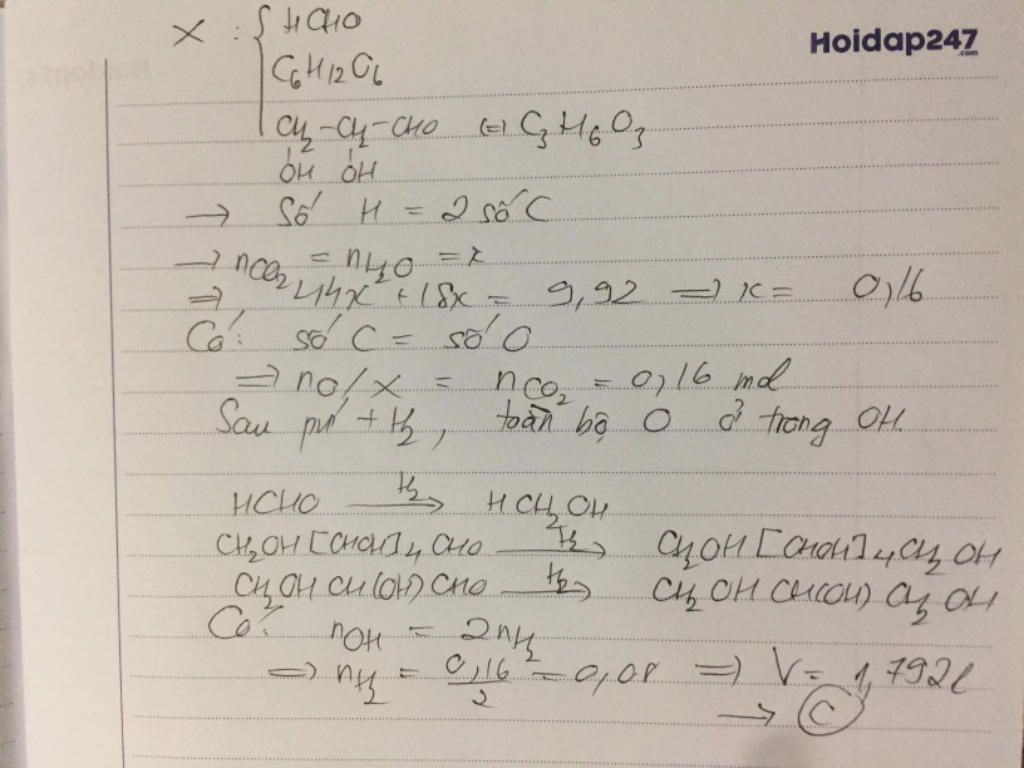 X : { HCHO
Hoidap247
.com
C₆H₁₂O₆
CH₂-CH-CHO (=) C₃H₆O₃
OH OH
→ Số H = 2 số C
→ nCO₂ = nH₂O = x
=> 44x + 18x = 9,92 => x = 0,16
Có: số C = số O
=> nO/X = nCO₂ = 0,16 mol
Sau pứ + H₂, toàn bộ O ở trong OH.
HCHO —H₂→ HCH₂OH
CH₂OH[CHOH]₄CHO —H₂→ CH₂OH[CHOH]₄CH₂OH
CH₂OHCH(OH)CHO —H₂→ CH₂OHCH(OH)CH₂OH
Có: nOH = 2nH₂
=> nH₂ = 0,16/2 = 0,08 => V = 1,792l
→ C